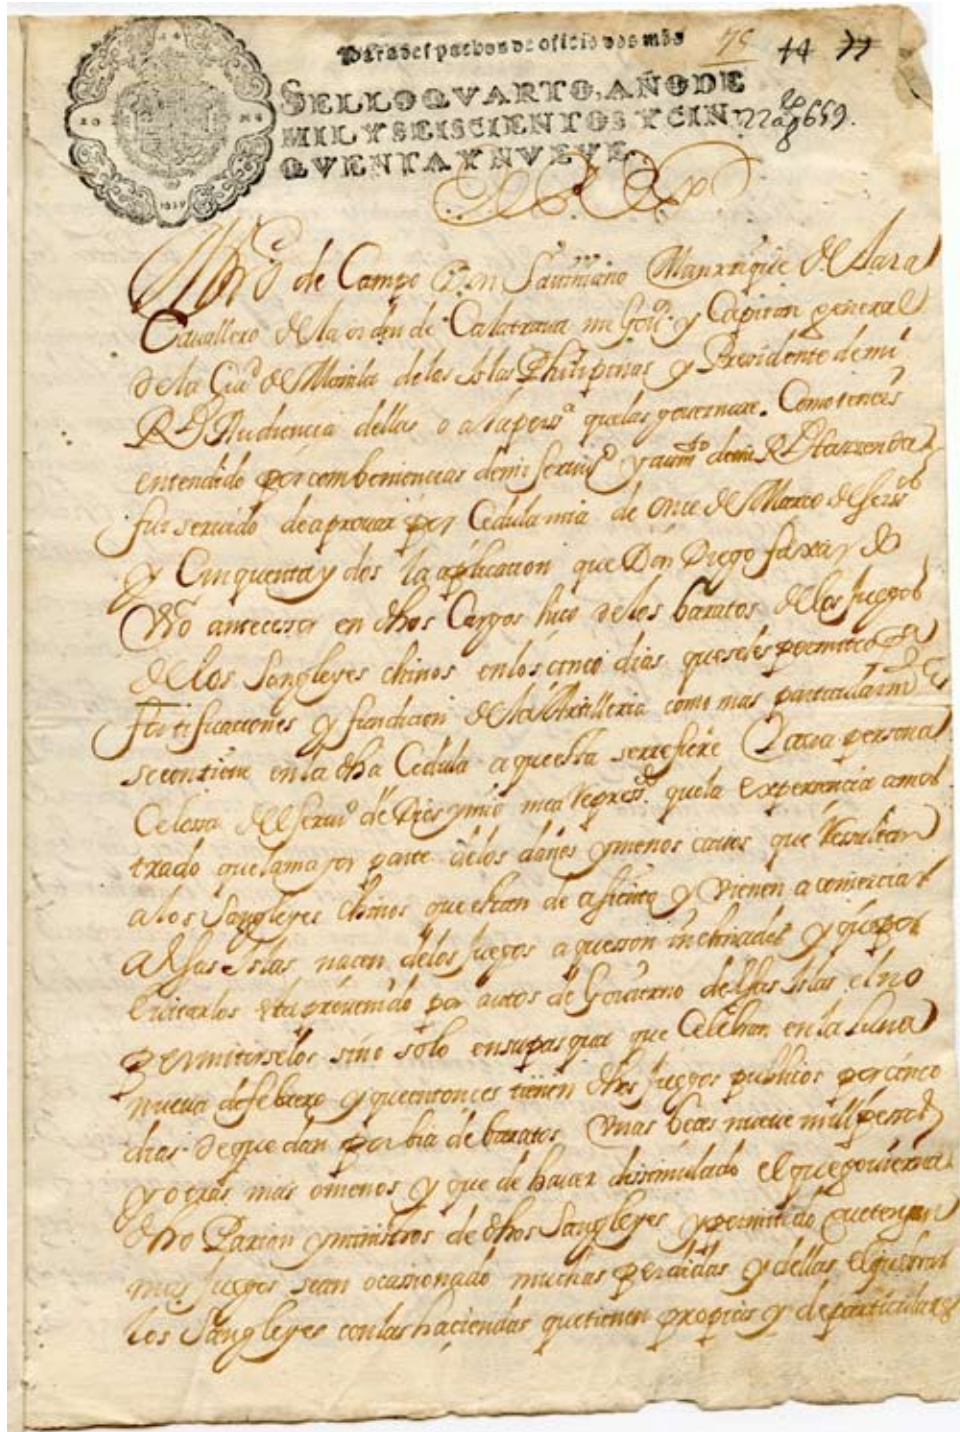 Para despachos de oficio dos mrs
75 14 77
SELLO QVARTO, AÑO DE
MIL Y SEISCIENTOS Y CIN
QVENTA Y NVEVE.
22 ag 659.
1659
El Rey
Mro de Campo Don Saviniano Manrrique de Lara
Cavallero de la orden de Calatrava mi Gou.or y Capitan general
de la Ciud de Manila de las Islas Philipinas y Presidente de mi
Rl Audiencia dellas o a la pers.a que las governare. Como teneis
entendido por combeniencias de mi servi.o y aum.to de mi Rl Hazienda
fui servido de aprovar por Cedula mia de once de Março de seiss.os
y Cinquenta y dos la aplicacion que Don Diego faxardo
Vro antecesor en dhos Cargos hiço de los baratos de los Juegos
de los Sangleyes chinos en los cinco dias que seles permitio p.a
fortificaciones y fundicion de la Artilleria como mas particularm.te
se contiene en la dha Cedula a que esta se rrefiere persona
Celossa del servi.o de Dios y mio me a repress.do que la experiencia a mos
trado que la mayor parte de los daños y menos cavos que Resultan
a los Sangleyes chinos que estan de asiento y vienen a comerciar
a essas Islas nacen de los Juegos a que sson inclinados y que por
evitarlos esta prevenido por autos de Govierno de essas Islas el no
permitirselos sino solo en su pasqua que Celebran en la Luna
nueva de febrero y que entonces tienen dhos Juegos publicos por cinco
dias de que dan por bia de baratos Unas beces nueve mill pessos
y otras mas o menos y que de haver dissimulado el que govierna
dho Parian y ministros de dhos Sangleyes y permitido que tengan
mas Juegos se an ocasionado muchas perdidas y dellas el quebrar
los Sangleyes con las haciendas que tienen propias y de particulares